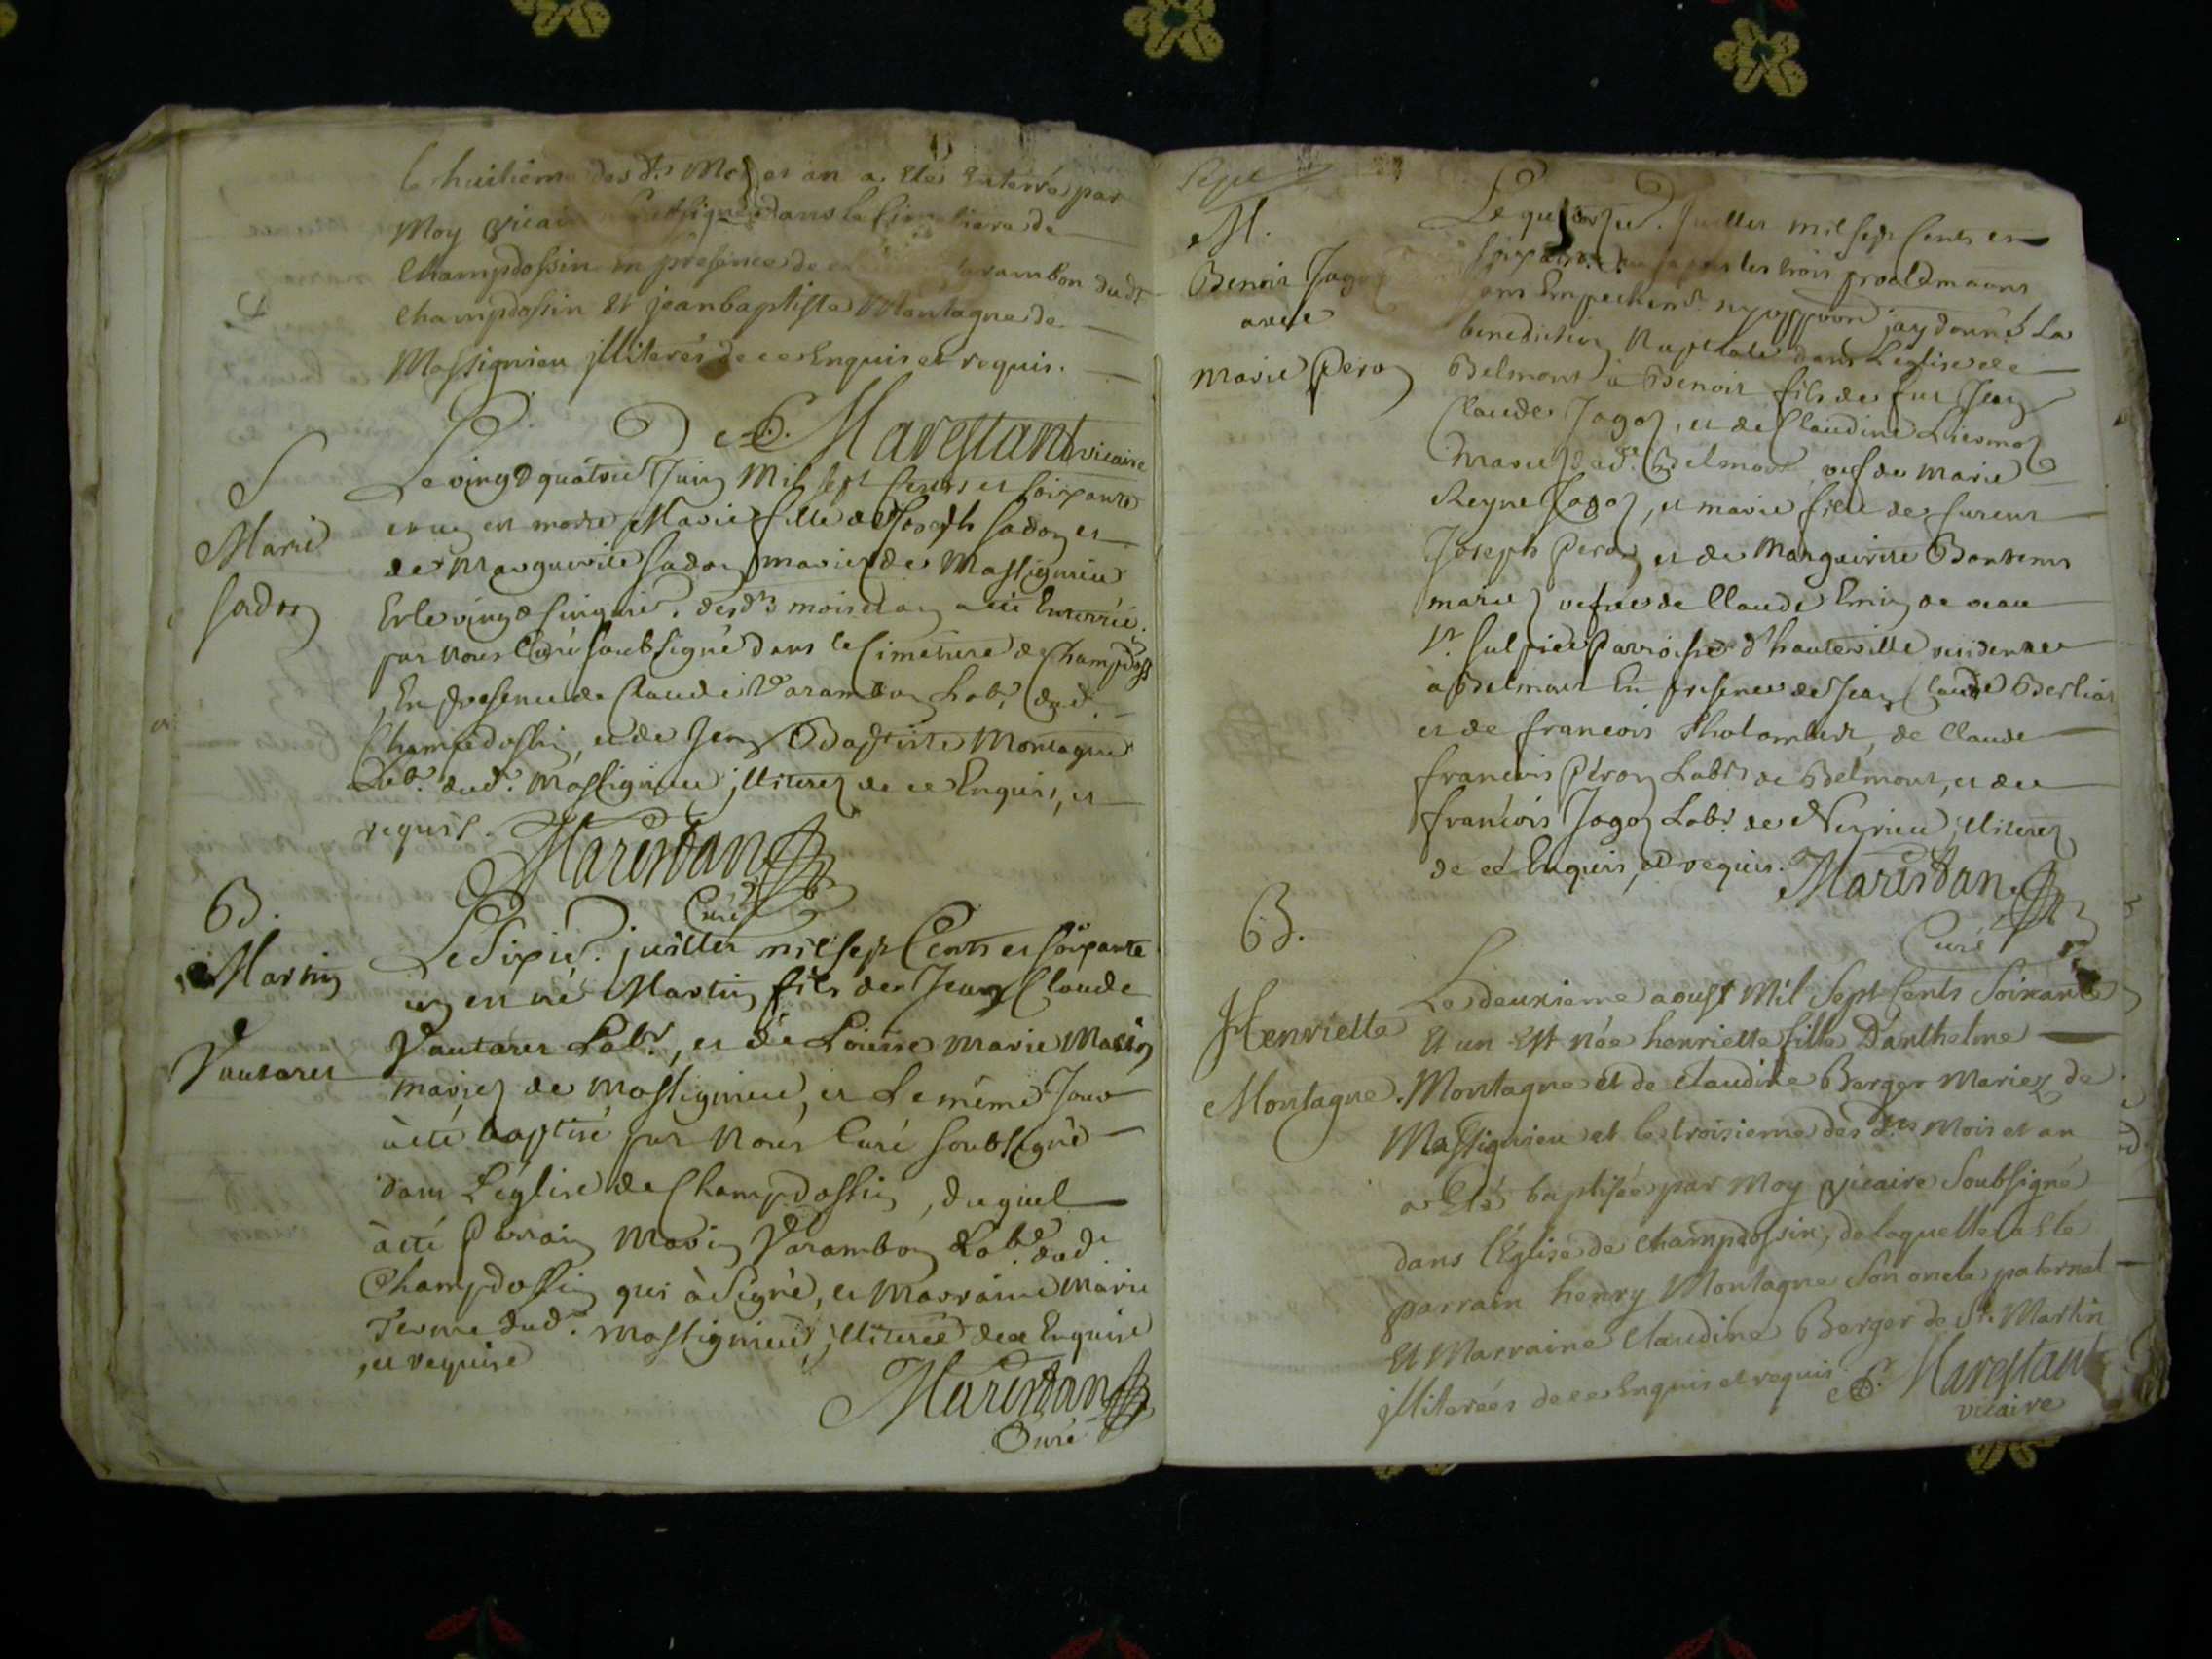 le huitième des d.ts Mois et an a Eté Enterré par
Moy vicaire soussigné dans le Cimetiere de
Champdossin en presence de Varambon dudt
Champdossin Et jean baptiste Montagne de
Massignieu jlliterés de ce Enquis et requis.
Marestant vicaire
S
Marie
Sadon
Le vingt quatrie Juin Mil sept Cents et soixante
et un est morte Marie fille de Joseph Sadon et
de Marguerite Sadon mariez de Massignieu
Et le vingt cinquie. desdts mois et an a été Enterrée
par Nous Curé soubsigné dans le Cimetiere de Champdoss
En presence de Claude Varambon Labr. dud.
Champdossin, et de Jean Baptiste Montagne
Labr. dud. Massignieu jlliterez de ce Enquis, et
requis. Marestan
Curé
B.
Martin
Vautaret
Le Sixie. juillet mil sept Cents et soixante
un est né Martin fils de Jean Claude
Vautaret Labr., et de Louise Marie Massin
mariez de Massignieu, et Le même Jour
à été baptisé par Nous Curé soubsigné
dans L'église de Champdossin, duquel
à été Parrain Varambon Labr. dud.
Champdossin qui à Signé, et Marraine Marie
dud. Massignieu jlliterée de ce Enquise
,et requise
Marestan
Curé
Sept
M.
Benoit Jagoz
avec
Marie Peron
Le Juillet mil sept Cents et
soixante les trois proclamaons
sans Empechemt. ny opp̃on jay donné La
benediction Nuptiale dans L'eglise de
Belmont à Benoit fils de fut Jean
Claude Jagoz, et de Claudine
Mariez dud. Belmont vef de Marie
Reyne Jagoz, et Marie fille de furent
Joseph Peron et de Marguerite Bontems
mariez vefve de Claude de
St. Sulpice Parroisse d'hauteville residente
à Belmont En presence de Jean Claude Berliat
et de francois Tholombert, de Claude
francois Péron Labrs de Belmont, et de
francois Jagoz Labr. de Neyrieu jlliterez
de cé Enquis, et requis. Marestan
Curé
B.
Henriette
Montagne.
Le deuxieme aoust Mil Sept Cents Soixante
Et un Est née henriette fille D'anthelme
Montagne et de claudine Berger Mariez de
Massignieu et le troisieme des dts Mois et an
a Eté baptisée par Moy vicaire Soubsigné
dans l'Eglise de champdossin, de laquelle a Eté
parrain henry Montagne Son oncle paternel
Et Marraine Claudine Berger de St. Martin
jlliterées de ce Enquis et requis. Marestant
vicaire